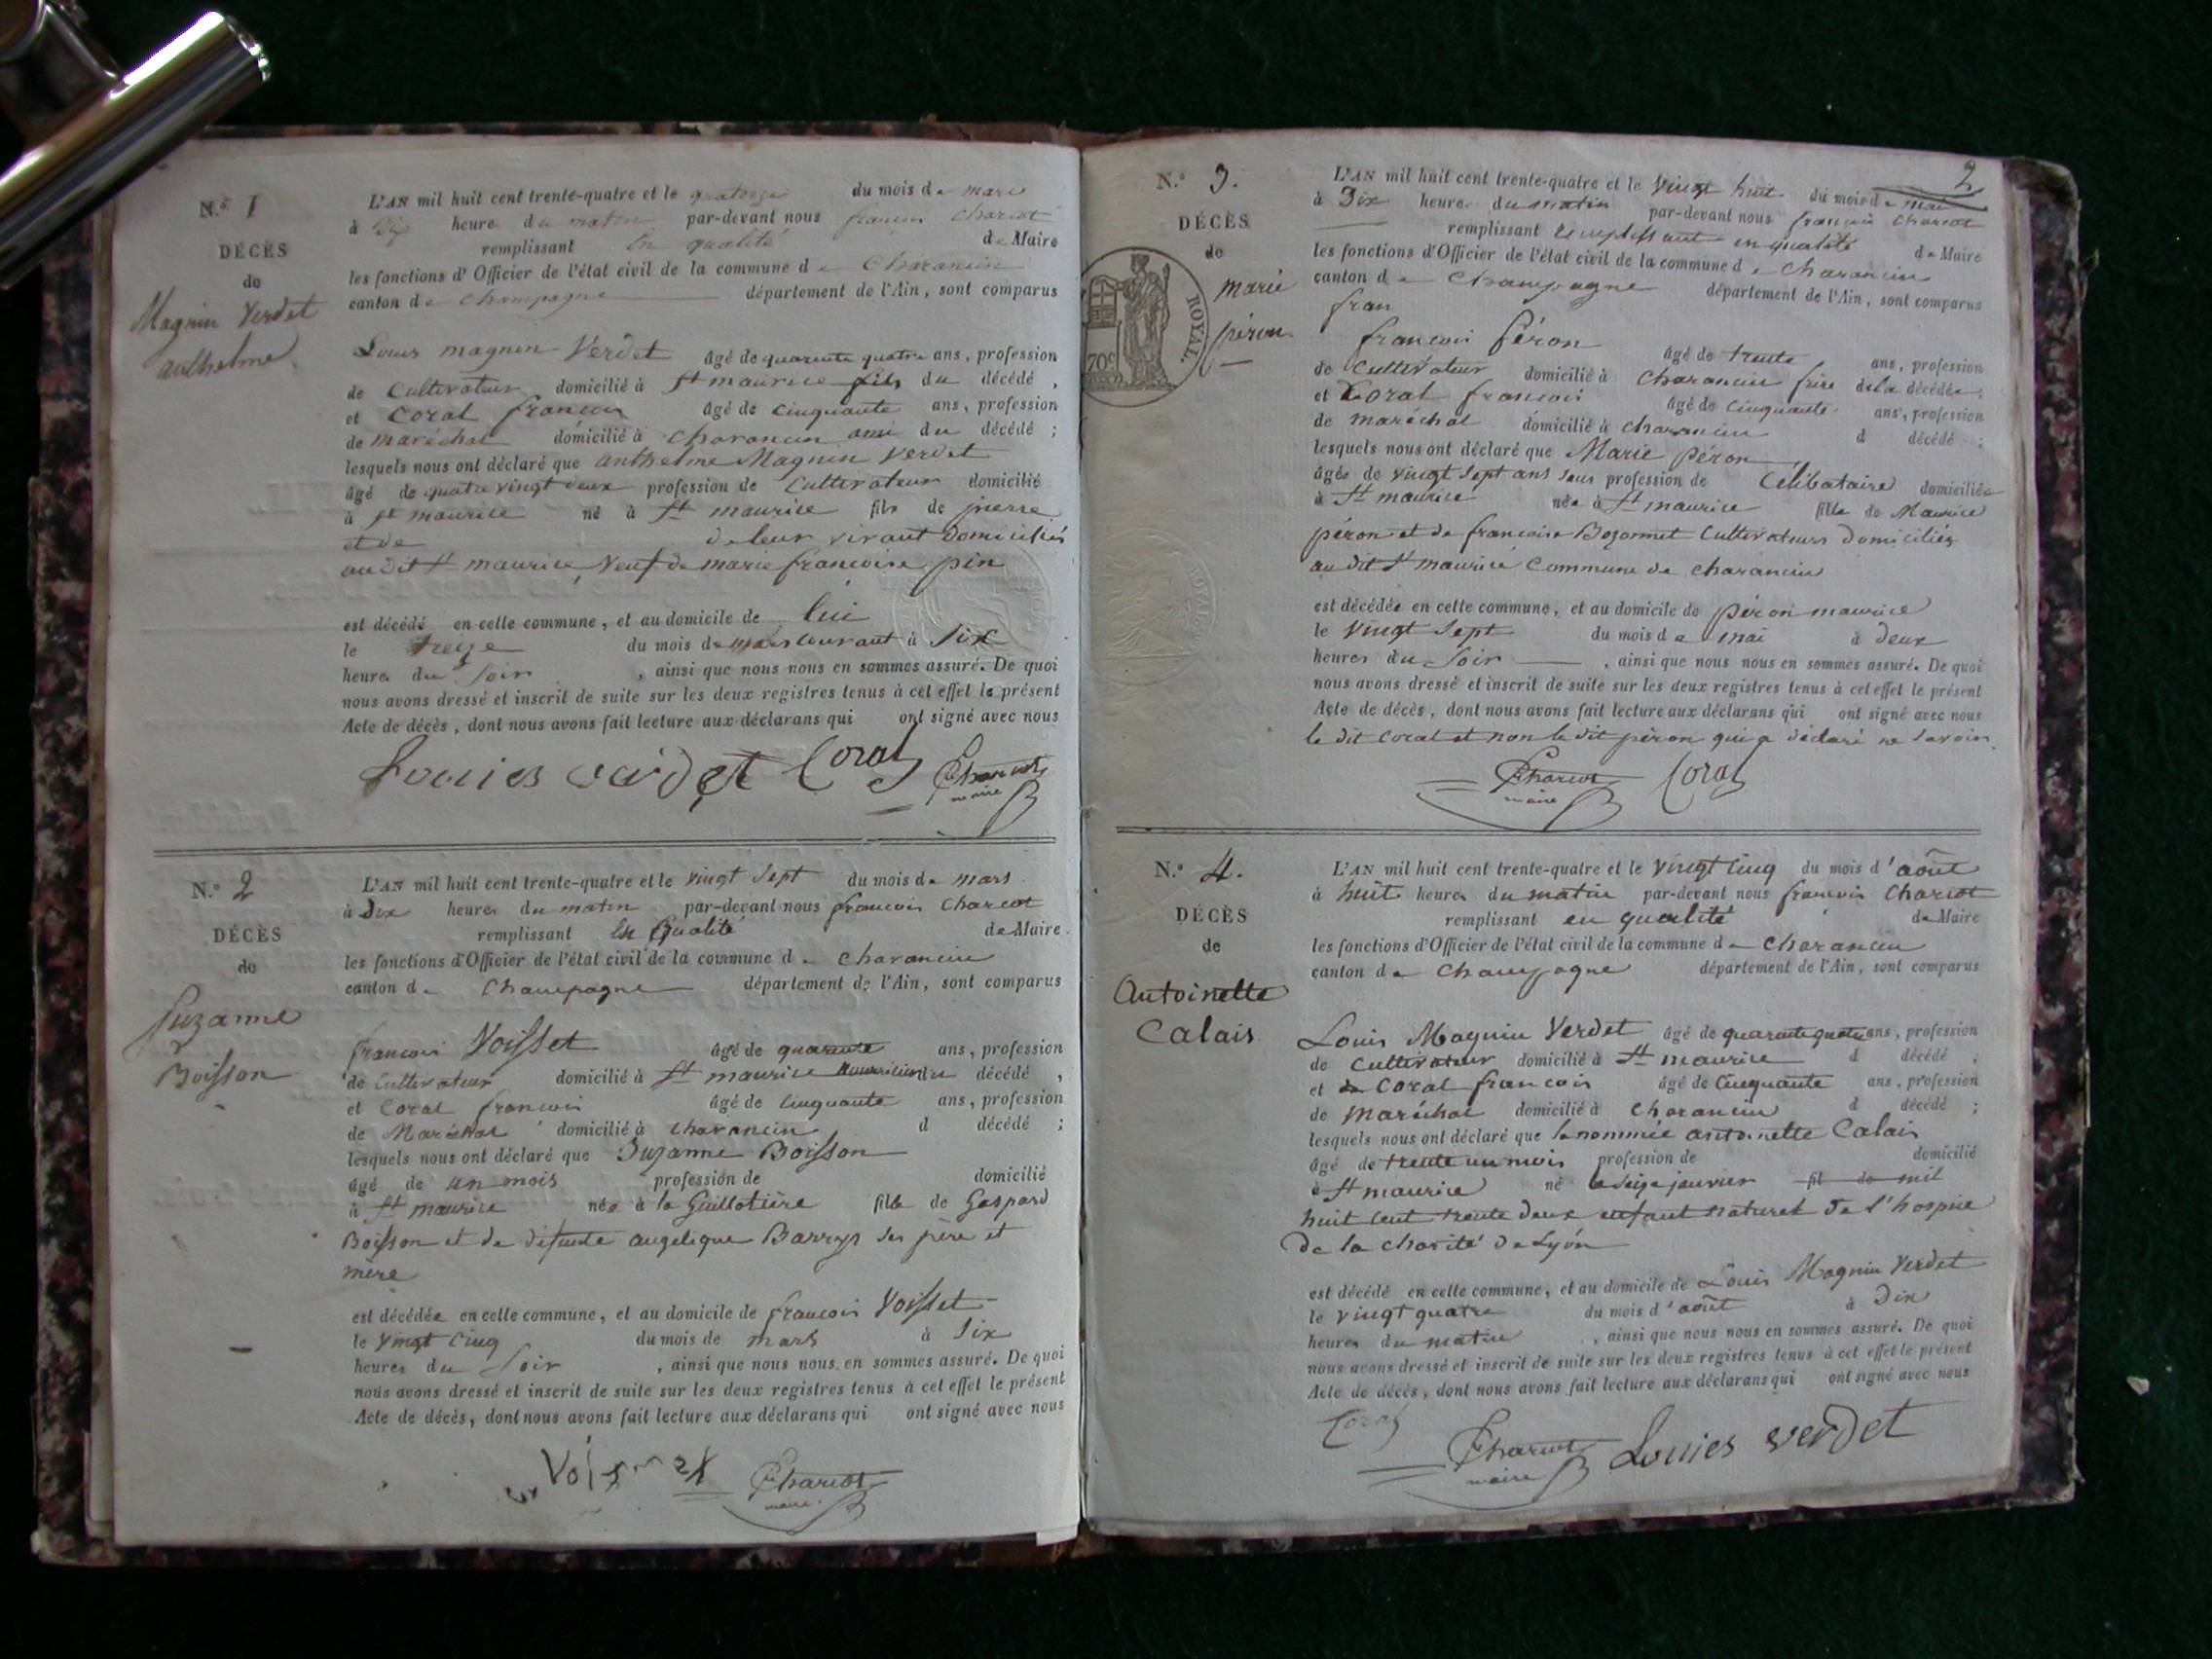 N.º 1
DÉCÈS
de
Magnin Verdet
anthelme
L'AN mil huit cent trente-quatre et le quatorze du mois de mars
à Dix heures du matin par-devant nous francois Chariot
remplissant En qualité de Maire
les fonctions d'Officier de l'état civil de la commune de Charancin
canton de Champagne département de l'Ain, sont comparus
Louis magnin Verdet âgé de quarente quatre ans, profession
de Cultivateur domicilié à St maurice fils du décédé,
et Coral francois âgé de Cinquante ans, profession
de maréchal domicilié à Charancin ami du décédé;
lesquels nous ont déclaré que anthelme Magnin Verdet
âgé de quatre vingt deux profession de Cultivateur domicilié
à St maurice né à St maurice fils de pierre
et de de leur vivant Domiciliés
au dit St maurice, Veuf de marie francoise pin
est décédé en cette commune, et au domicile de lui
le treize du mois de mars courant à Six
heures du Soir, ainsi que nous nous en sommes assuré. De quoi
nous avons dressé et inscrit de suite sur les deux registres tenus à cet effet le présent
Acte de décès, dont nous avons fait lecture aux déclarans qui ont signé avec nous
Louies verdet Coral Chariot
maire
N.º 2
DÉCÈS
de
Suzanne
Boisson
L'AN mil huit cent trente-quatre et le vingt Sept du mois de mars
à Dix heures du matin par-devant nous francois Chariot
remplissant En Qualité de Maire
les fonctions d'Officier de l'état civil de la commune de Charancin
canton de Champagne département de l'Ain, sont comparus
francois Voisset âgé de quarente ans, profession
de Cultivateur domicilié à St maurice Nourricier du décédé,
et Coral francois âgé de Cinquante ans, profession
de Maréchal domicilié à Charancin d décédé;
lesquels nous ont déclaré que Suzanne Boisson
âgé de un mois profession de domicilié
à St maurice née à la Guillotière fille de Gaspard
Boisson et de défunte angelique Barryp ses père et
mère
est décédée en cette commune, et au domicile de francois Voisset
le vingt Cinq du mois de mars à Six
heures du Soir, ainsi que nous nous en sommes assuré. De quoi
nous avons dressé et inscrit de suite sur les deux registres tenus à cet effet le présent
Acte de décès, dont nous avons fait lecture aux déclarans qui ont signé avec nous
Chariot
maire
2
N.º 3.
DÉCÈS
de
marie
péron
ROYAL
70c
L'AN mil huit cent trente-quatre et le Vingt huit du mois de mai
à Dix heures du matin par-devant nous francois Chariot
remplissant remplissant en qualité de Maire
les fonctions d'Officier de l'état civil de la commune de Charancin
canton de Champagne département de l'Ain, sont comparus
fran
francois péron âgé de trente ans, profession
de Cultivateur domicilié à Charancin frère de la décédée;
et Coral francois âgé de Cinquante ans, profession
de maréchal domicilié à Charancin d décédé;
lesquels nous ont déclaré que Marie péron
âgée de vingt Sept ans sans profession de Célibataire domiciliée
à St maurice née à St maurice fille de Maurice
péron et de francoise Bozonnet Cultivateurs Domiciliés
au dit St maurice Commune de Charancin
est décédée en cette commune, et au domicile de péron maurice
le Vingt Sept du mois de mai à deux
heures du Soir, ainsi que nous nous en sommes assuré. De quoi
nous avons dressé et inscrit de suite sur les deux registres tenus à cet effet le présent
Acte de décès, dont nous avons fait lecture aux déclarans qui ont signé avec nous
le dit Coral et non le dit péron qui a déclaré ne Savoir
Chariot Coral
maire
N.º 4.
DÉCÈS
de
Antoinette
Calais
L'AN mil huit cent trente-quatre et le vingt Cinq du mois d'août
à huit heures du matin par-devant nous francois Chariot
remplissant en qualité de Maire
les fonctions d'Officier de l'état civil de la commune de Charancin
canton de Champagne département de l'Ain, sont comparus
Louis Magnin Verdet âgé de quarante quatre ans, profession
de Cultivateur domicilié à St maurice d décédé,
et Coral francois âgé de Cinquante ans, profession
de Maréchal domicilié à Charancin d décédé;
lesquels nous ont déclaré que la nommée antoinette Calais
âgé de trente un mois profession de domicilié
à St maurice né le Seize janvier fil de mil
huit Cent trente Deux enfant naturel De l'hospice
De la charité De Lyon
est décédé en cette commune, et au domicile de Louis Magnin Verdet
le vingt quatre du mois d'août à Dix
heures du matin, ainsi que nous nous en sommes assuré. De quoi
nous avons dressé et inscrit de suite sur les deux registres tenus à cet effet le présent
Acte de décès, dont nous avons fait lecture aux déclarans qui ont signé avec nous
Coral Chariot Louies verdet
maire